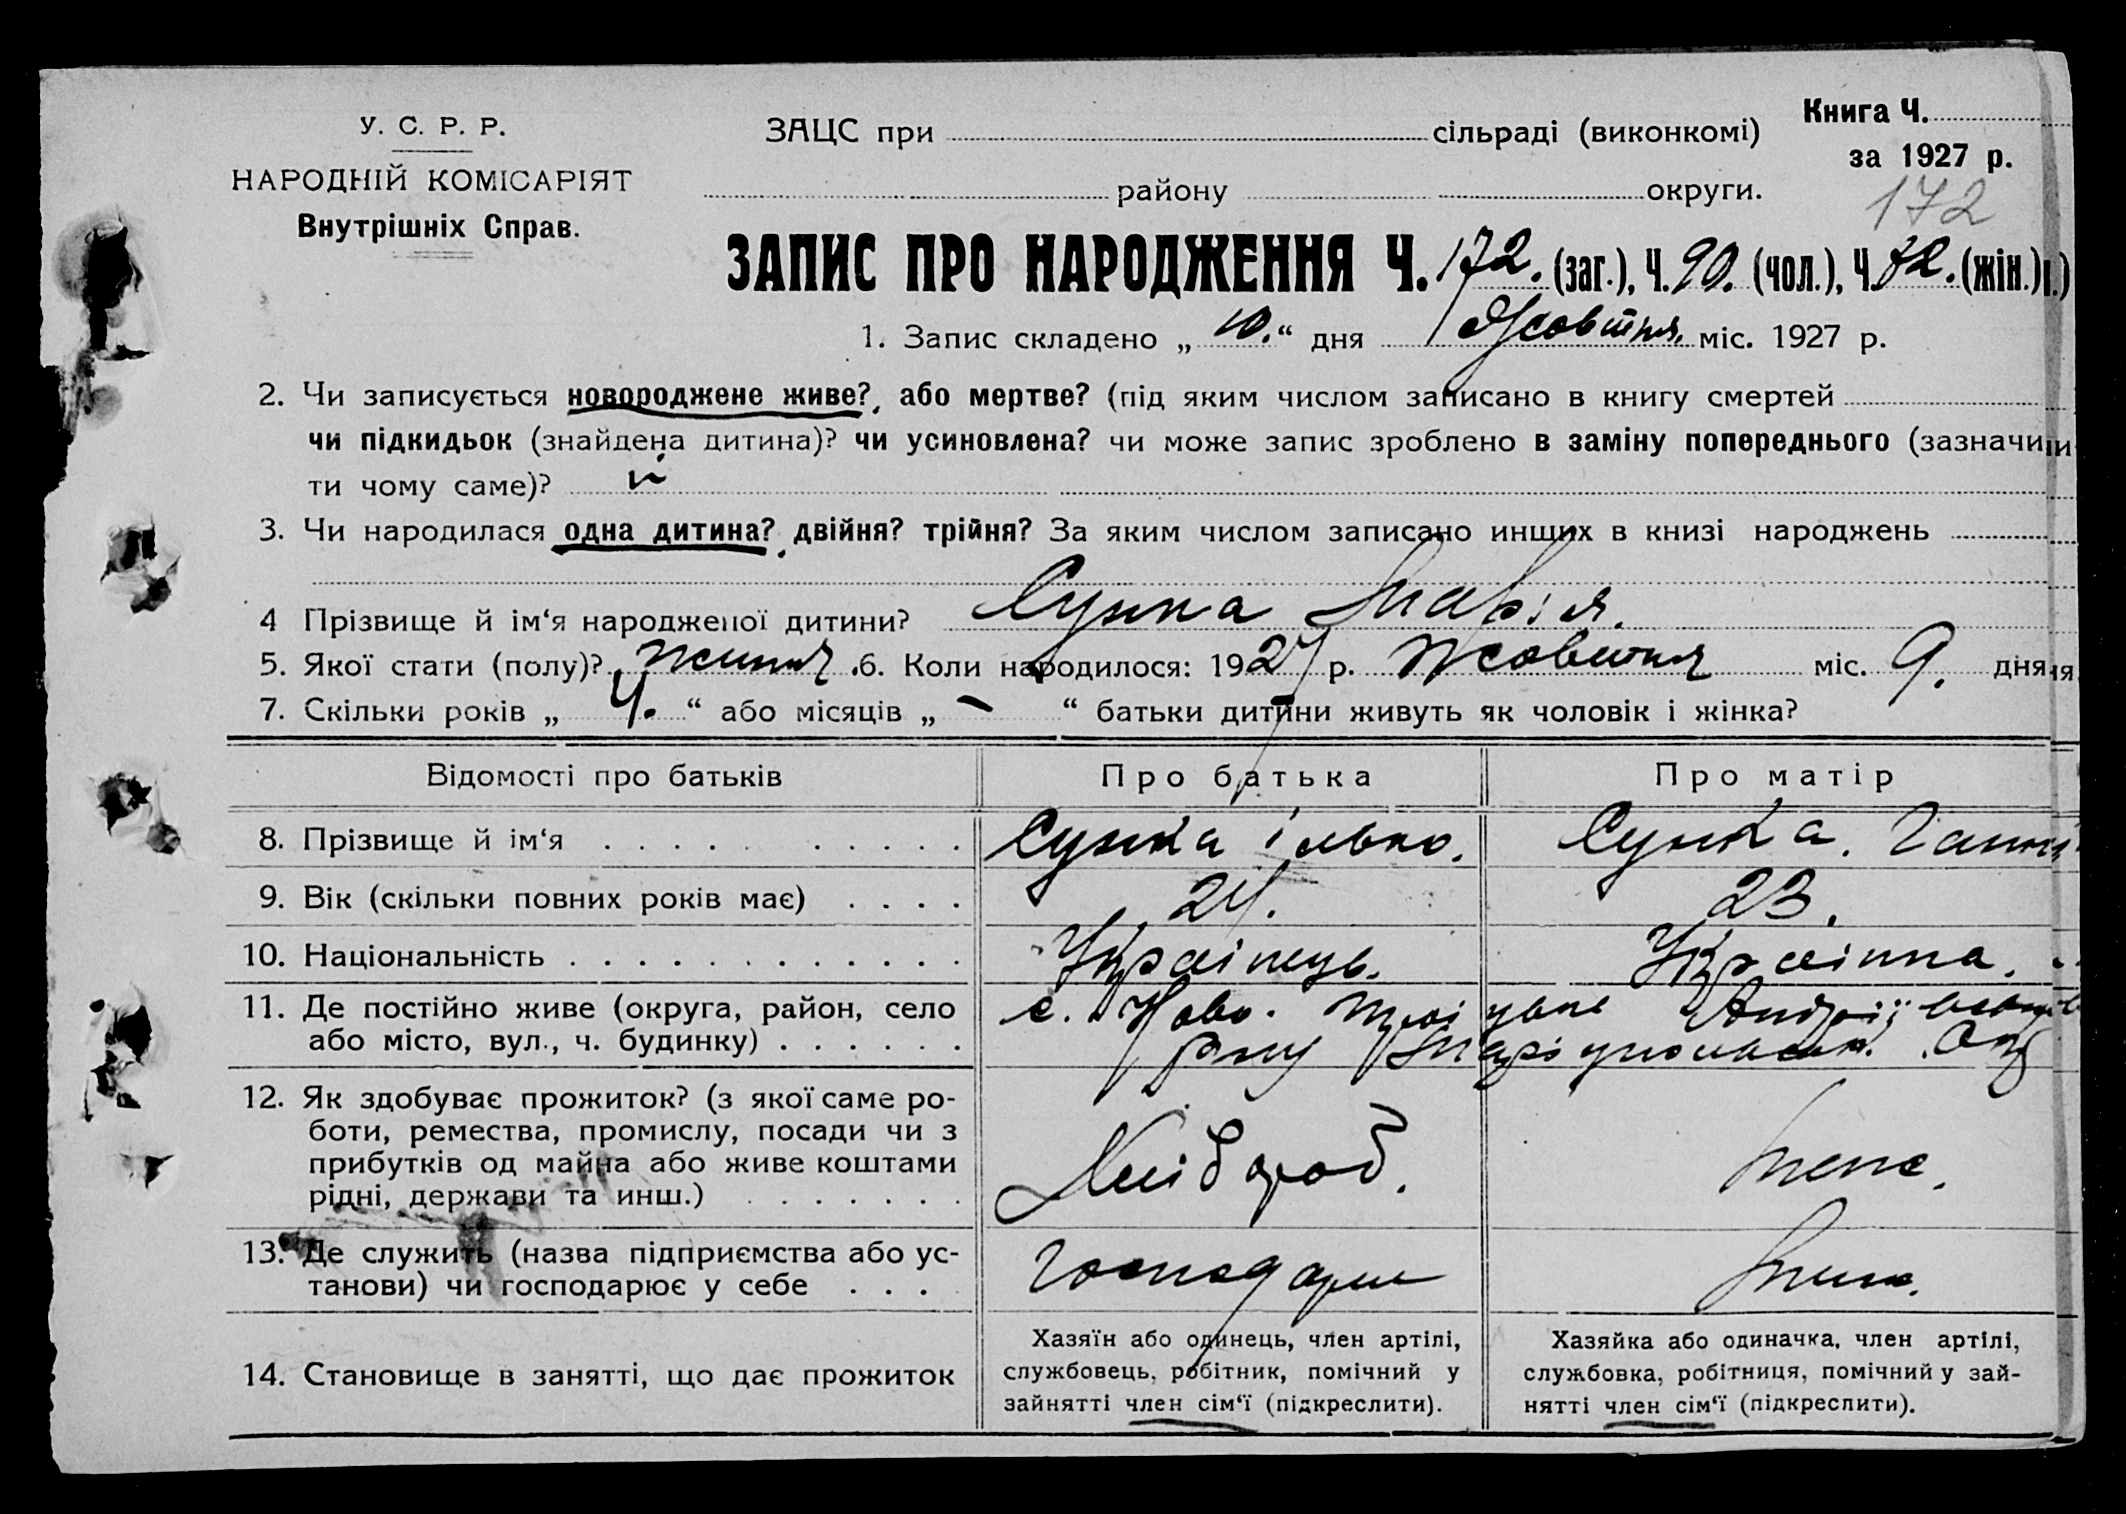 У. С. Р. Р.
НАРОДНІЙ КОМІСАРІЯТ
Внутрішніх Справ.
ЗАЦС при сільраді (виконкомі)
району округи.
Книга Ч.
за 1927 р.
172
ЗАПИС ПРО НАРОДЖЕННЯ Ч. 172. (заг.), Ч. 90. (чол.), Ч. 82. (жін.)
1. Запис складено „ 10. “ дня Жовтня. міс. 1927 р.
2. Чи записується новороджене живе?, або мертве? (під яким числом записано в книгу смертей
чи підкидьок (знайдена дитина)? чи усиновлена? чи може запис зроблено в заміну попереднього (зазначи-
ти чому саме)?
3. Чи народилася одна дитина? двійня? трійня? За яким числом записано инщих в книзі народжень
4 Прізвище й ім‘я народженої дитини? Сунка Марія.
5. Якої стати (полу)? 6. Коли народилося: 1927 р. Жовтня міс. 9. дня
7. Скільки років „ 4. “ або місяців „ - “ батьки дитини живуть як чоловік і жінка?
Відомості про батьків Про батька Про матір
8. Прізвище й ім‘я Сунка Ілько. Сунка. Ганна
9. Вік (скільки повних років має) 24. 23.
10. Національність Українець. Українка.
11. Де постійно живе (округа, район, село с. Ново.
або місто, вул., ч. будинку) Маріупольськ.
12. Як здобуває прожиток? (з якої саме ро-
боти, ремества, промислу, посади чи з
прибутків од майна або живе коштами
рідні, держави та инш.) Хлібороб. теж.
13. Де служить (назва підприємства або ус-
танови) чи господарює у себе
14. Становище в занятті, що дає прожиток
Хазяїн або одинець, член артілі,
службовець, робітник, помічний у
зайнятті член сім‘ї (підкреслити).
Хазяйка або одиначка, член артілі,
службовка, робітниця, помічний у зай-
нятті член сім‘ї (підкреслити).